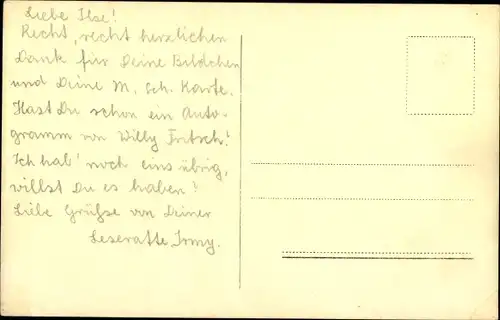 Liebe Ilse!
Recht, recht herzlichen
Dank für Deine Bildchen
und Deine M. Sch. Karte.
Hast Du schon ein Auto-
gramm von Willy Fritsch?
Ich hab' noch eins übrig,
willst Du es haben?
Liebe Grüße von Deiner
Leseratte Irmy.